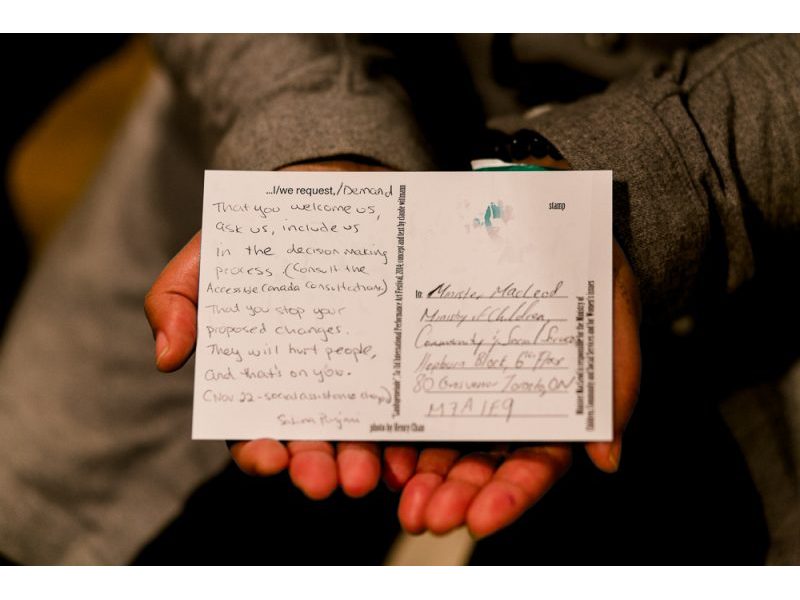 ...I/we request,/Demand
That you welcome us,
ask us, include us
in the decision making
process. (Consult the
Accessible Canada Consultations)
That you stop your
proposed changes.
They will hurt people,
and that's on you.
(Nov 22 - social assistance
photo by Henry Chan
International Performance Art Festival, 2014; concept and text by claude wittmann
stamp
to: Minister MacLeod
Ministry of Children,
Community & Social Services
Hepburn Block, 6th Floor
80 Grosvenor Toronto, ON
M7A 1E9
Minister MacLeod is responsible for the Ministry of
Children, Community and Social Services and for Women's Issues